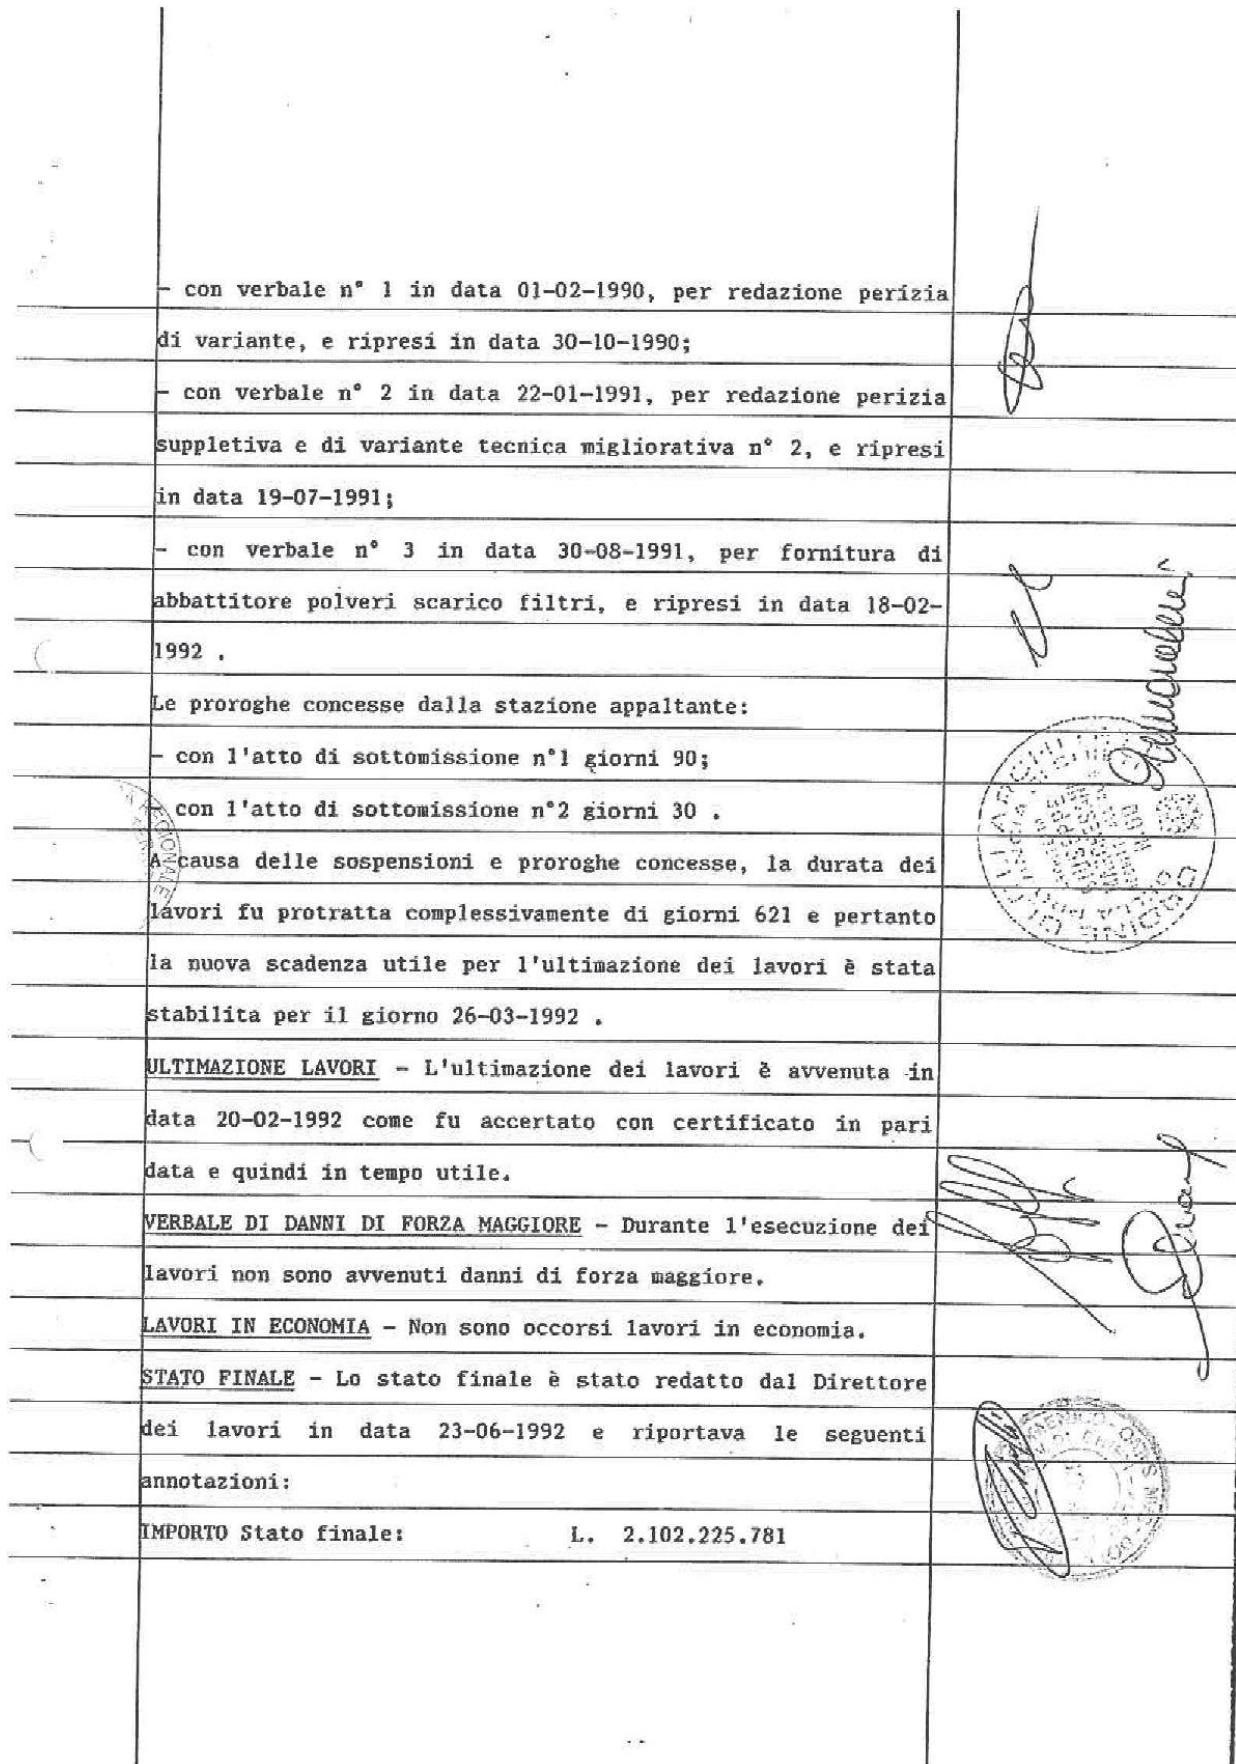 - con verbale n° 1 in data 01-02-1990, per redazione perizia
di variante, e ripresi in data 30-10-1990;
- con verbale n° 2 in data 22-01-1991, per redazione perizia
suppletiva e di variante tecnica migliorativa n° 2, e ripresi
in data 19-07-1991;
- con verbale n° 3 in data 30-08-1991, per fornitura di
abbattitore polveri scarico filtri, e ripresi in data 18-02-
1992 .
Le proroghe concesse dalla stazione appaltante:
- con l'atto di sottomissione n°1 giorni 90;
con l'atto di sottomissione n°2 giorni 30 .
A causa delle sospensioni e proroghe concesse, la durata dei
lavori fu protratta complessivamente di giorni 621 e pertanto
la nuova scadenza utile per l'ultimazione dei lavori è stata
stabilita per il giorno 26-03-1992 .
ULTIMAZIONE LAVORI - L'ultimazione dei lavori è avvenuta in
data 20-02-1992 come fu accertato con certificato in pari
data e quindi in tempo utile.
VERBALE DI DANNI DI FORZA MAGGIORE - Durante l'esecuzione dei
lavori non sono avvenuti danni di forza maggiore.
LAVORI IN ECONOMIA - Non sono occorsi lavori in economia.
STATO FINALE - Lo stato finale è stato redatto dal Direttore
dei lavori in data 23-06-1992 e riportava le seguenti
annotazioni:
IMPORTO Stato finale: L. 2.102.225.781
REGIONALE
ORDINE